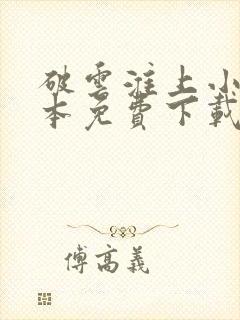 破雲淮上小
本免費下載
傅高義